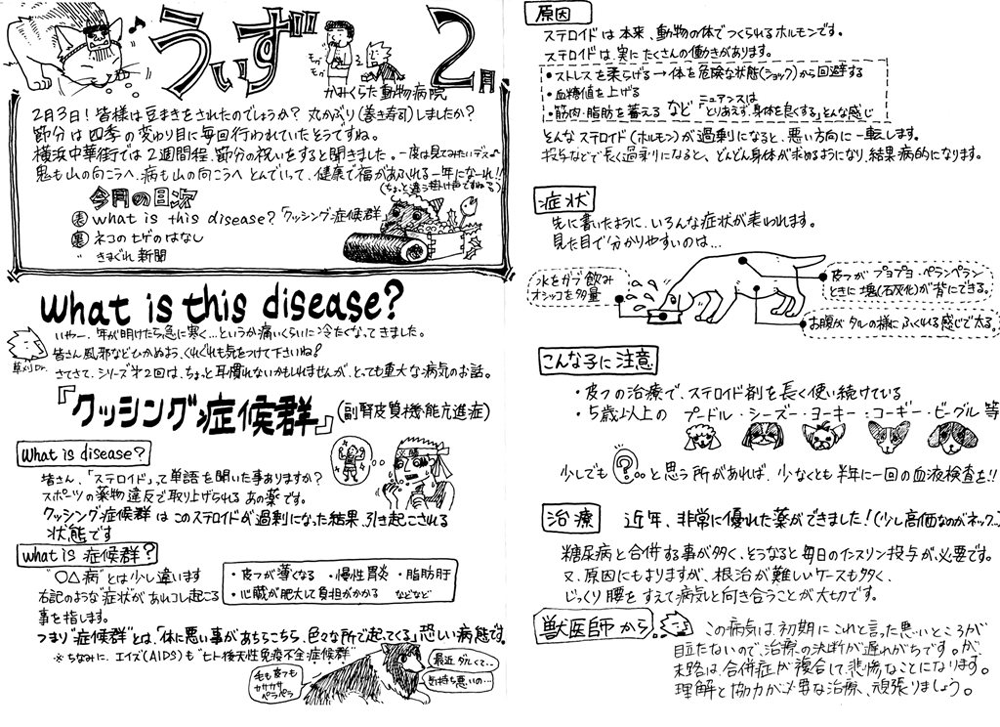 うぃず
2月
モグ
モグ
かみくらた動物病院
2月3日!皆様は豆まきをされたのでしょうか?丸かぶり(巻き寿司)しましたか?
節分は四季の変わり目に毎回行われていたそうですね。
横浜中華街では2週間程、節分の祝いをすると聞きました。一度は見てみたいデス♪
鬼も山の向こうへ、病も山の向こうへとんでいって、健康で福があふれる一年になーれ!!
(ちょっと違う掛け声ですねる)
今月の目次
表 what is this disease?「クッシング症候群
裏 ネコのヒゲのはなし
〃 きまぐれ新聞
What is this disease?
いやー、年が明けたら急に寒く…というか痛いくらいに冷たくなってきました。
皆さん風邪などひかぬよう、くれぐれも気をつけて下さいね!
さてさて、シリーズ第2回は、ちょっと耳慣れないかもしれませんが、とっても重大な病気のお話。
草刈Dr.
『クッシング症候群』(副腎皮質機能亢進症)
What is disease?
皆さん、「ステロイド」って単語を聞いた事ありますか?
スポーツの薬物違反で取り上げられるあの薬です。
クッシング症候群はこのステロイドが過剰になった結果、引き起こされる
状態です
what is 症候群?
"〇△病"とは少し違います
右記のような"症状があれコレ起こる
事を指します。
・皮フが薄くなる ・慢性胃炎 ・脂肪肝
・心臓が肥大して負担がかかる などなど
つまり"症候群"とは、「体に悪い事があちらこちら、色々な所で起ってくる」恐しい病態です。
※ちなみに、エイズ(AIDS)も"ヒト後天性免疫不全症候群"
毛も皮フも
カサカサ
ペラペラ
最近ダルくて…
気持ち悪いの…
原因
ステロイドは本来、動物の体でつくられるホルモンです。
ステロイドは実にたくさんの働きがあります。
・ストレスを柔らげる→体を危険な状態(ショック)から回避する
・血糖値を上げる
・筋肉・脂肪を蓄える など ニュアンスは
「とりあえず、身体を良くする」とんな感じ
とんなステロイド(ホルモン)が過剰になると、悪い方向に一転します。
投与などで長く過剰になると、どんどん身体が求めるようになり、結果病的になります。
症状
先に書いたように、いろんな症状が表われます。
見た目で分かりやすいのは…
水をガブ飲み
オシッコを多量
皮フが プヨプヨ・ペランペラン
ときに塊(石灰化)が背にできる。
お腹がタルの様にふくれる感じで太る
こんな子に注意
・皮フの治療で、ステロイド剤を長く使い続けている
・5歳以上の プードル・シーズー・ヨーキー・コーギー・ビーグル 等
少しでも ? 。。と思う所があれば、少なくとも半年に一回の血液検査を!!
治療 近年、非常に優れた薬ができました!(少し高価なのがネック…)
糖尿病と合併する事が多く、そうなると毎日のインスリン投与が必要です。
又、原因にもよりますが、根治が難しいケースも多く、
じっくり腰をすえて病気と向き合うことが大切です。
獣医師から
この病気は、初期にこれと言った悪いところが
目立たないので、治療の決断が遅れがちです。が、
末路は、合併症が複合して、悲惨なことになります。
理解と協力が必要な治療、頑張りましょう。